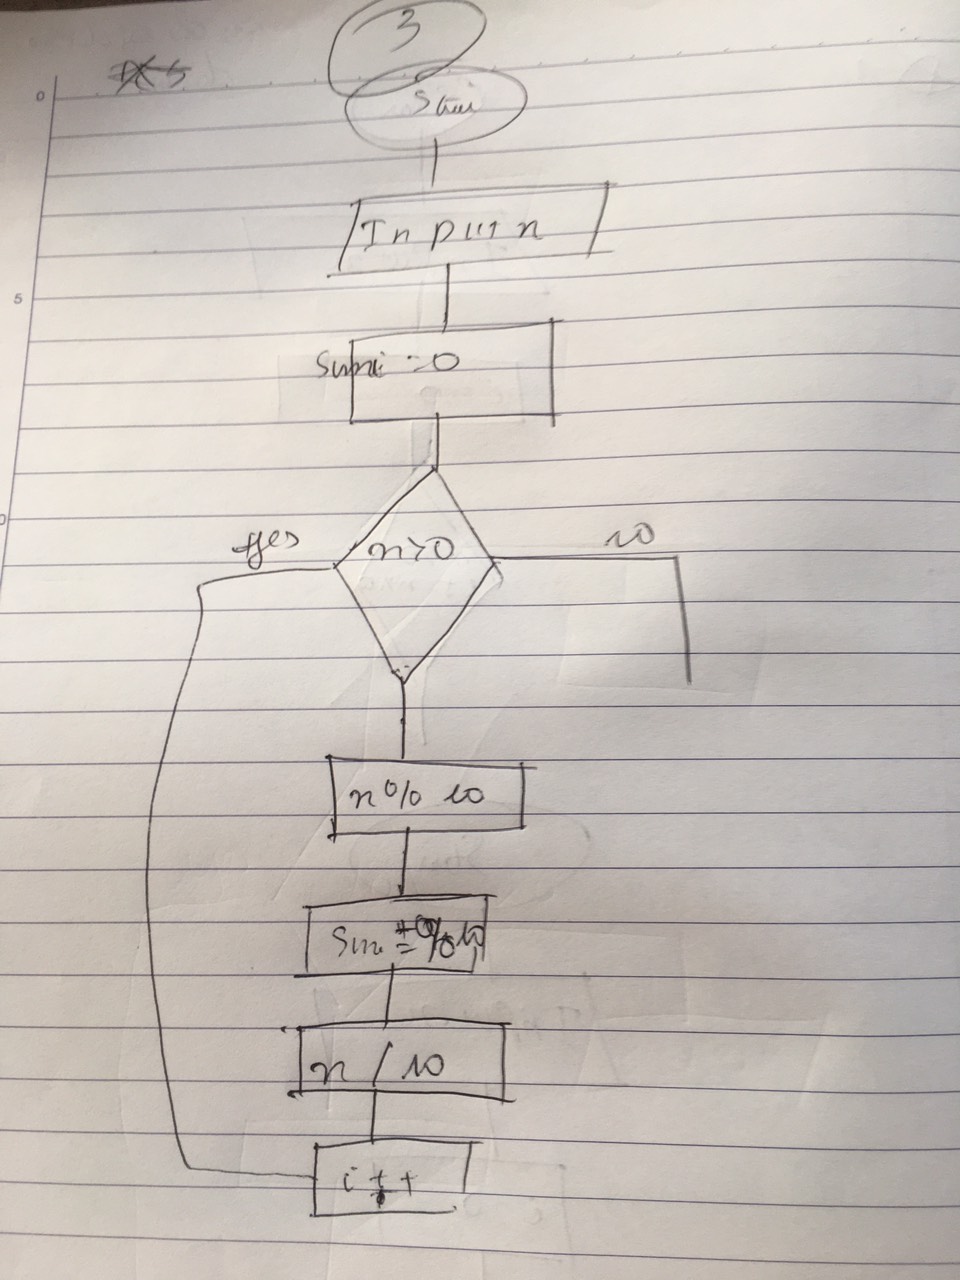 3
0
Input n
5
Sum = 0
0
yes
n>0
no
n % 10
Sum += % 10
n / 10
i++